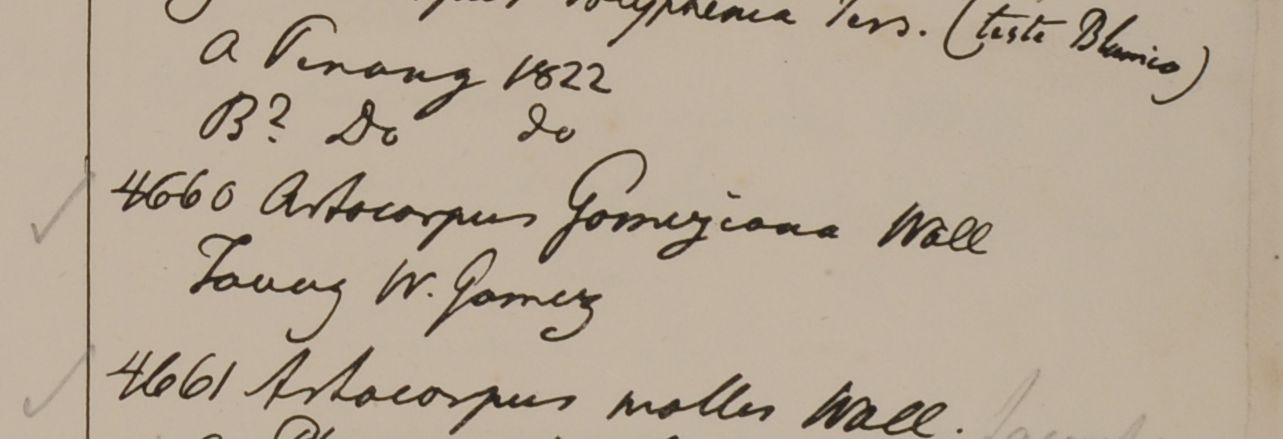 Polyphema Pers. (teste Blanco)
A Penang 1822
B? Do do
4660 Artocarpus Gomeziana Wall
Tavoy W. Gomez
4661 Artocarpus mollis Wall.